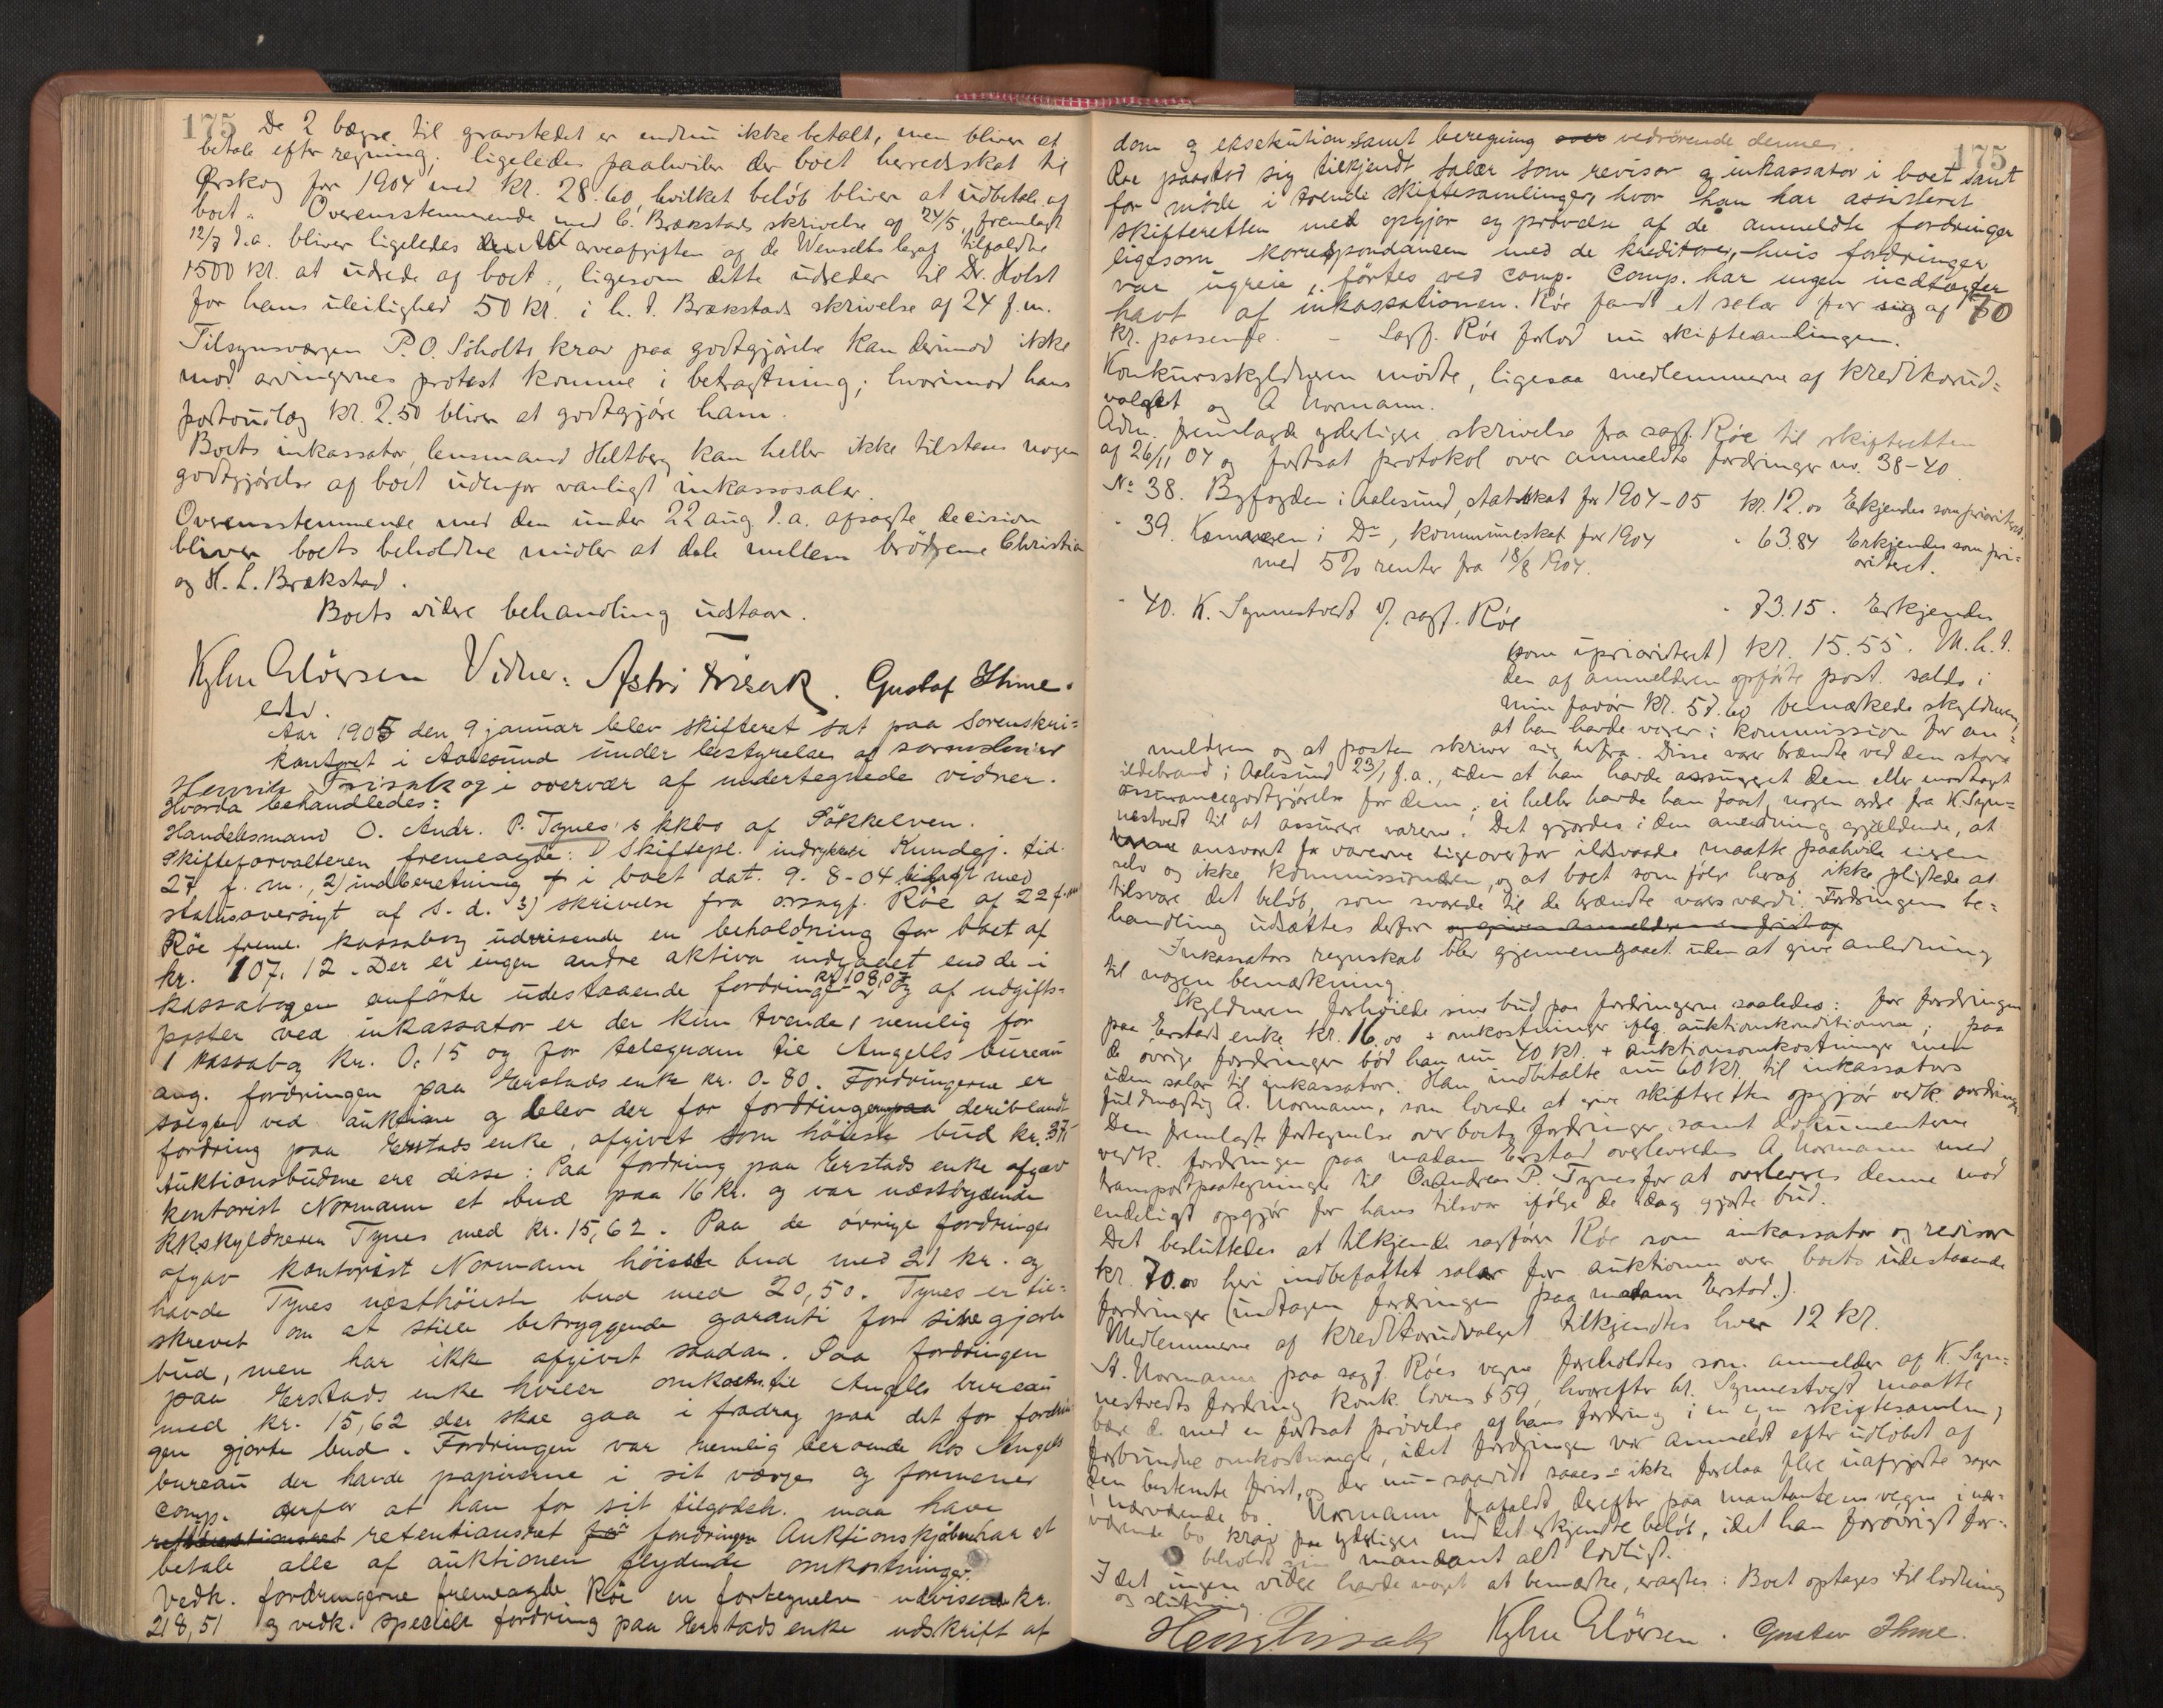 175
De 2 bægre til gravstedet er endnu ikke betalt, men bliver at
betale efter regning; ligeledes paahviler der boet herredsskat til
Ørskog for 1904 med kr. 28.60, hvilket beløb bliver at udbetale af
boet. Overensstemmende med C. Brækstads skrivelse af 24/5, fremlagt
12/7 d.a. bliver ligeledes arveafgiften af de Wenselts legat tilfaldne
1500 kr. at udrede af boet, ligesom dette udreder til Dr. Holst
for hans uleilighed 50 kr. i h. t. Brækstads skrivelse af 24 f.m.
Tilsynsværgen P.O. Søholts krav paa godtgjørelse kan derimod ikke
mod arvingernes protest komme i betragtning; hvorimod hans
portoudlæg kr. 2.50 bliver at godtgjøre ham.
Boets inkassator, lensmand Heltberg kan heller ikke tilstaaes nogen
godtgjørelse af boet udenfor vanligt inkassosalær.
Overensstemmende med den under 22 aug. d.a. afsagte decision
bliver boets beholdne midler at dele mellem brødrene Christian
og H. L. Brækstad.
Boets videre behandling udstaar.
Vidner: Astri Frisak. Gustaf Thime.
edsv.
Aar 1905 den 9 januar blev skifteret sat paa Sorenskri-
kontoret i Aalesund under bestyrelse af sorenskriver
Henrik Frisak og i overvær af undertegnede vidner.
Hvorda behandledes:
Handelsmand O. Andr. P. Tynes's kkbo af Søkkelven.
Skifteforvalteren fremlagde: 1) Skiftepl. indrykket Kundgj. tid.
27 f. m., 2) indberetning i boet dat. 9-8-04 bilagt med
statusoversigt af s. d. 3) skrivelse fra orsagf. Röe af 22 f.m.
Röe freml. kassabog udvisende en beholdning for boet af
kr. 107.12. Der er ingen andre aktiva indgaaet end de i
kassabogen anførte udestaaende fordringer kr 108,07 og af udgifts-
poster ved inkassator er der kun tvende, nemlig for
1 kassabog kr. 0.15 og for telegram til Angells bureau
ang. fordringen paa Erstads enke kr. 0-80. Fordringerne er
solgte ved auktion og blev der for fordringerne paa deriblandt
fordring paa Erstads enke, afgivet som høieste bud kr. 37-
Auktionsbudene ere disse: Paa fordring paa Erstads enke afgav
kontorist Normann et bud paa 16 kr. og var næstbydende
kkskyldneren Tynes med kr. 15,62. Paa de øvrige fordringer
afgav kontorist Normann høieste bud med 21 kr. og
havde Tynes næsthøieste bud med 20,50. Tynes er til-
skrevet om at stille betryggende garanti for sine gjorte
bud, men har ikke afgivet saadan. Paa fordringen
paa Erstads enke hviler omkostn. til Angells bureau
med kr. 15,62 der skal gaa i fradrag paa det for fordrin-
gen gjorte bud. Fordringen var nemlig beroende hos Angells
bureau der havde papirerne i sit værge og formener
comp. derfor at han for sit tilgodeh. maa have
retentionsret for fordringen Auktionskjøberen har at
betale alle af auktionen flydende omkostninger.
Vedk. fordringerne fremlagde Röe en fortegnelse udvisende kr.
218,51 og vedk. specielt fordring paa Erstads enke udskrift af
175
dom og eksekution samt beregning over vedrørende denne.
Røe paastod sig tilkjendt salær som revisor og inkassator i boet samt
for møde i tvende skiftesamlinger, hvor han har assisteret
skifteretten med opgjør og prøvelse af de anmeldte fordringer
ligesom korrespondancen med de kreditorer, hvis fordringer
var ugreie, førtes ved comp. Comp. har ingen indtægter
havt af inkassationen. Røe fandt et salær for sig af 70
kr. passende. - Sagf. Røe forlod nu skiftesamlingen.
Konkursskyldneren mødte, ligesaa medlemmerne af kreditorud-
valget og A Normann.
Adm. fremlagde yderligere skrivelse fra sagf. Røe til skifteretten
af 26/11 04 og fortsat protokol over anmeldte fordringer no. 38-40
No 38. Byfogden i Aalesund, statsskat for 1904-05 kr. 12.00 Erkjendes som prioriteret.
" 39. Kæmneren i Do, kommuneskat for 1904 " 63.84 Erkjendes som pri-
med 5% renter fra 18/8 1904. oriteret.
" 40. K. Synnestvedt v/ sagf. Røe " 73.15. Erkjendes
(som uprioriteret) kr. 15.55. M.h.t.
den af anmelderen opførte post. saldo i
min favør kr. 57.60 bemærkede skyldneren,
at han havde varer i kommission for an-
melderen og at posten skriver sig herfra. Disse varer brændte ved den store
ildebrand i Aalesund 23/1 f.a., uden at han havde assureret dem eller modtaget
assurancegodtgjørelse for dem; ei heller havde han faaet nogen ordre fra K. Syn-
nestvedt til at assurere varerne. Det gjordes i den anledning gjældende, at
ansvaret for varerne ligeoverfor ildsvaade maatte paahvile eieren
selv og ikke kommissionæren, og at boet som følge heraf ikke pligtede at
tilsvare det beløb, som svarede til de brændte varers værdi. Fordringens be-
handling udsættes derfor og gives anmelderen en frist og
Inkassators regnskab blev gjennemgaaet uden at give anledning
til nogen bemærkning.
Skyldneren forhøiede sine bud paa fordringerne saaledes: for fordringen
paa Erstads enke kr. 16.00 + omkostninger iflg. auktionskonditionerne; paa
de øvrige fordringer bød han nu 40 kr. + auktionsomkostninger men
uden salær til inkassator. Han indbetalte nu 60 kr. til inkassators
fuldmægtig A. Normann, som lovede at give skifteretten opgjør vedk. fordringer.
Den fremlagte fortegnelse over boets fordringer samt dokumenterne
vedk. fordringen paa madam Erstad overleveredes A Normann med
transportpaategninger til O. Andreas P. Tynes for at overleveres denne mod
endeligt opgjør for hans tilsvar ifølge de idag gjorte bud.
Det besluttedes at tilkjende sagfører Røe som inkassator og revisor
kr. 70.00 heri indbefattet salær for auktionen over boets udestaaende
fordringer (undtagen fordringen paa madam Erstad.).
Medlemmerne af kreditorudvalget tilkjendtes hver 12 kr.
A. Normann paa sagf. Røes vegne foreholdtes som anmelder af K. Syn-
nestvedts fordring konk. lovens § 59, hvorefter hr. Synnestvedt maatte
bære de med en fortsat prøvelse af hans fordring i en egen skiftesamling
forbundne omkostninger, idet fordringen var anmeldt efter udløbet af
den bestemte frist, og der nu - saavidt saaes - ikke forelaa flere uafgjorte sager
i nærværende bo. Normann frafaldt derefter paa mandantens vegne i nær-
værende bo krav paa yderligere end det erkjendte beløb, idet han forøvrigt for-
beholdt sin mandant alt lovligt.
Idet ingen videre havde noget at bemærke, eragtes: Boet optages til lodning
og slutning.
Henr. Frisak Gustav Thime.